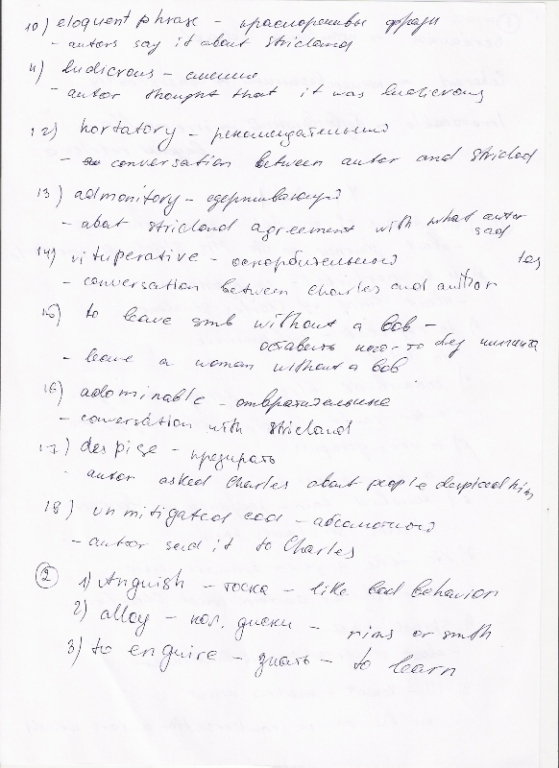 10) eloquent phrase - красноречивы фразы
- autors say it about stricland
11) ludicrous - смешно
- autor thought that it was ludicrous
12) hortatory - рекомендательный
- conversation between autor and striclad
13) admonitory - сдерживающий
- abat stricland agreement with what autor
sad
14) vituperative - оскорбительный
- conversation between charles and author
15) to leave smb without a bob -
оставить кого-то без
- leave a woman without a bob
16) adominable - отвратительно
- conversation with stricland
17) despise - презирать
- autor asked Charles about people despiced him
18) unmitigated cad - абсолютный
- autor said it to Charles
2 1) Anguish - тоска - like bad behavior
2) alloy - кол. диски - rims or smth
3) to enquire - знать - to learn